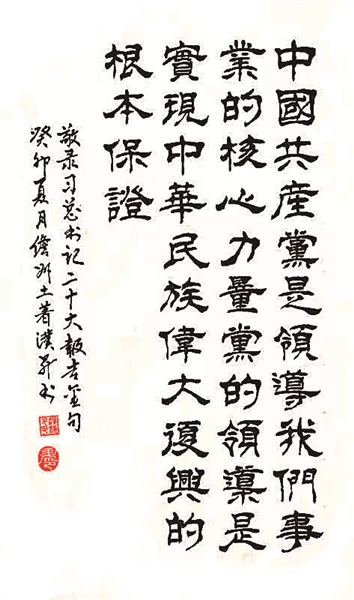 中國共産黨是領導我們事
業的核心力量黨的領導是
實現中華民族偉大復興的
根本保證
敬录习总书记二十大報告金句
癸卯夏月儋州土著书